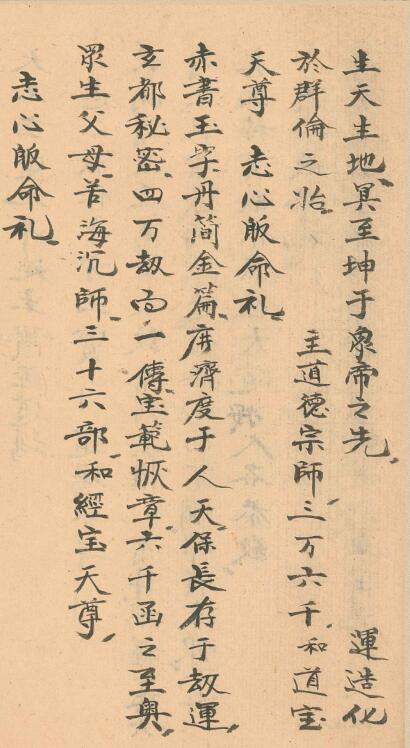 生天生地冥至坤于象帝之先　運造化
於群倫之始　主道德宗師三万六千和道宝
天尊　志心皈命礼
赤書玉字丹简金篇庄濟度于人天保長存于劫運
玄都秘密四万劫而一傳宝範恢章六千函之至奧
眾生父母苦海沉師三十六部和經宝天尊
志心皈命礼